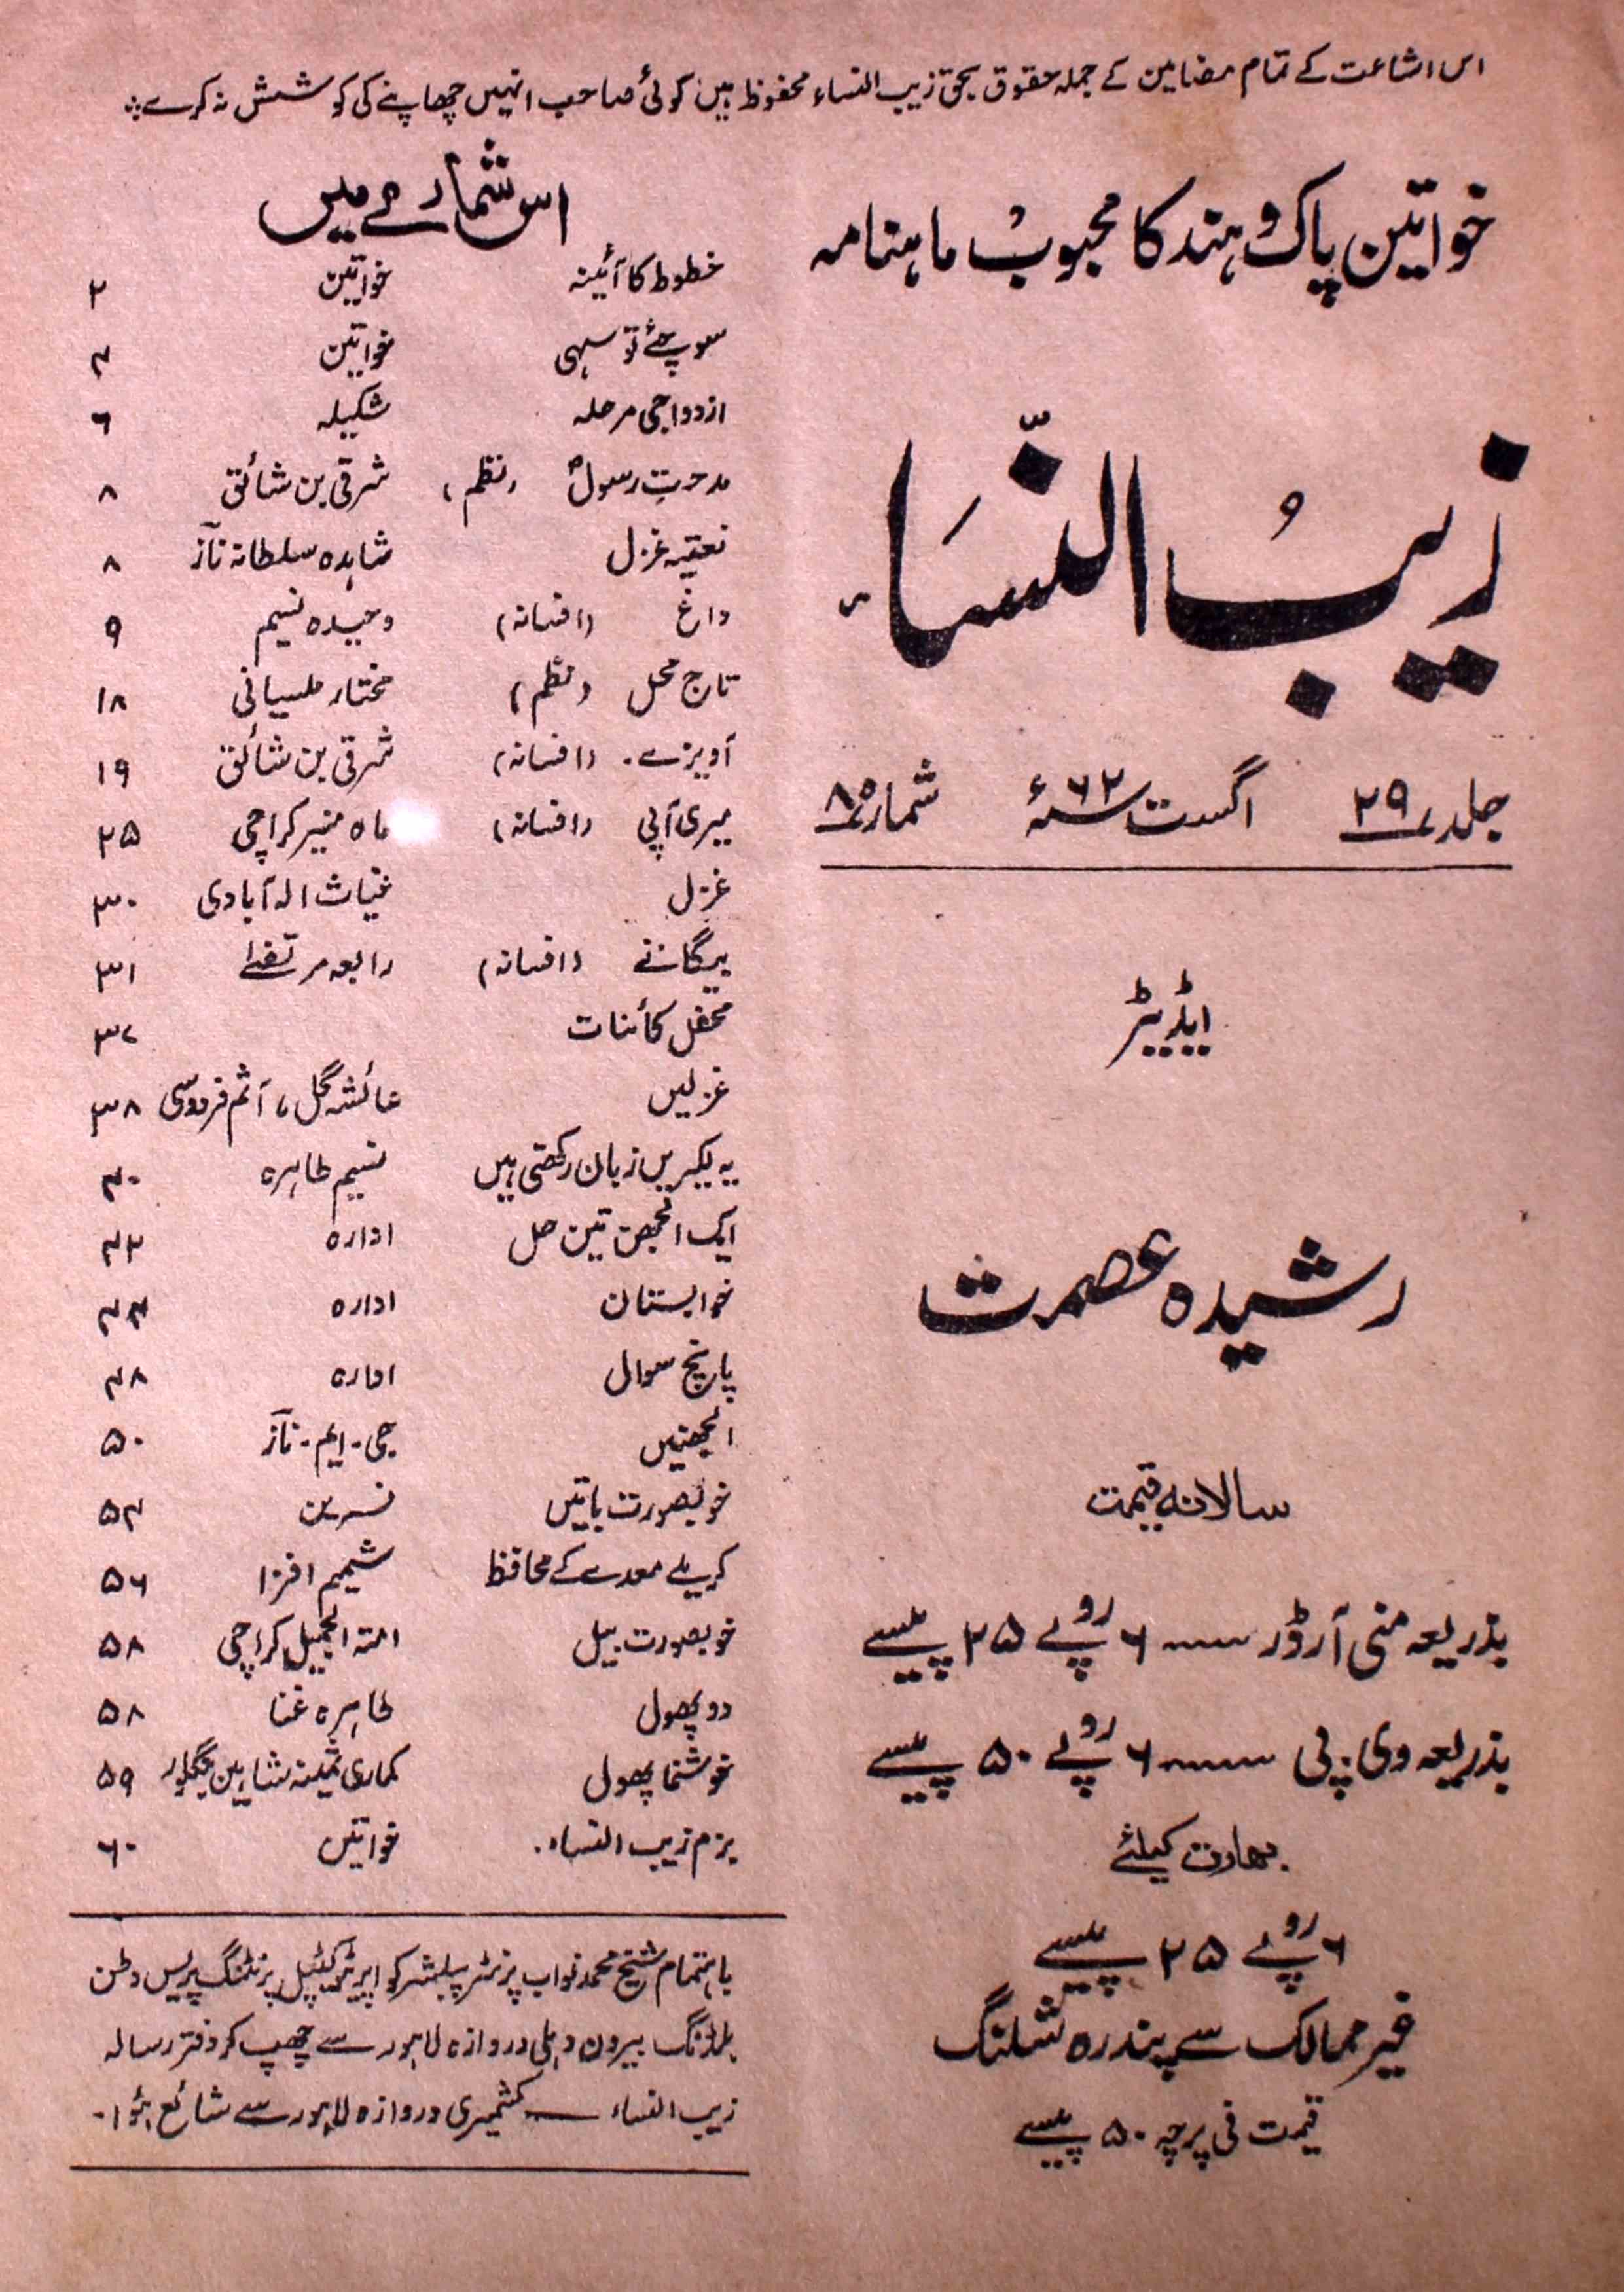 اس اشاعت کے تمام مضامین کے جملہ حقوق بحق زیب النساء محفوظ ہیں کوئی صاحب انہیں چھاپنے کی کوشش نہ کرے
خواتین پاک و ہند کا محبوب ماہنامہ
زیب النساء
جلد ۲۹ اگست ۶۲ء شمارہ ۸
ایڈیٹر
رشیدہ عصمت
سالانہ قیمت
بذریعہ منی آرڈر ۶ روپے ۲۵ پیسے
بذریعہ وی۔پی ۶ روپے ۵۰ پیسے
بھارت کیلئے
۶ روپے ۲۵ پیسے
غیر ممالک سے پندرہ شلنگ
قیمت فی پرچہ ۵۰ پیسے
اس شمارے میں
خطوط کا آئینہ خواتین ۲
سوچئے تو سہی خواتین ۴
ازدواجی مرحلہ شکیلہ ۶
مدحتِ رسولؐ (نظم) شرقی بن شائق ۸
نعتیہ غزل شاہدہ سلطانہ ناز ۸
داغ (افسانہ) وحیدہ نسیم ۹
تاج محل (نظم) مختار ملسیانی ۱۸
آویزے (افسانہ) شرقی بن شائق ۱۹
میری آپی (افسانہ) ماہ منیر کراچی ۲۵
غزل غیاث الہ آبادی ۳۰
بیگانے (افسانہ) رابعہ مرتضےٰ ۳۱
محفل کائنات ۳۷
غزلیں عائشہ گل، آثم فردوسی ۳۸
یہ لکیریں زبان رکھتی ہیں نسیم طاہرہ ۴۰
ایک الجھن تین حل ادارہ ۴۲
خوابستان ادارہ ۴۴
پانچ سوال ادارہ ۴۸
الجھنیں جی۔ایم۔ناز ۵۰
خوبصورت باتیں نسرین ۵۴
کریلے معدے کے محافظ شمیم افزا ۵۶
خوبصورت بیل امتہ الجمیل کراچی ۵۸
دو پھول طاہرہ غنا ۵۸
خوشنما پھول کماری ثمینہ شاہین بنگلور ۵۹
بزم زیب النساء۔ خواتین ۶۰
باہتمام شیخ محمد نواب پرنٹر پبلشر کواپریٹو کیپٹل پرنٹنگ پریس وطن
بلڈنگ بیرون دہلی دروازہ لاہور سے چھپ کر دفتر رسالہ
زیب النساء کشمیری دروازہ لاہور سے شائع ہؤا۔